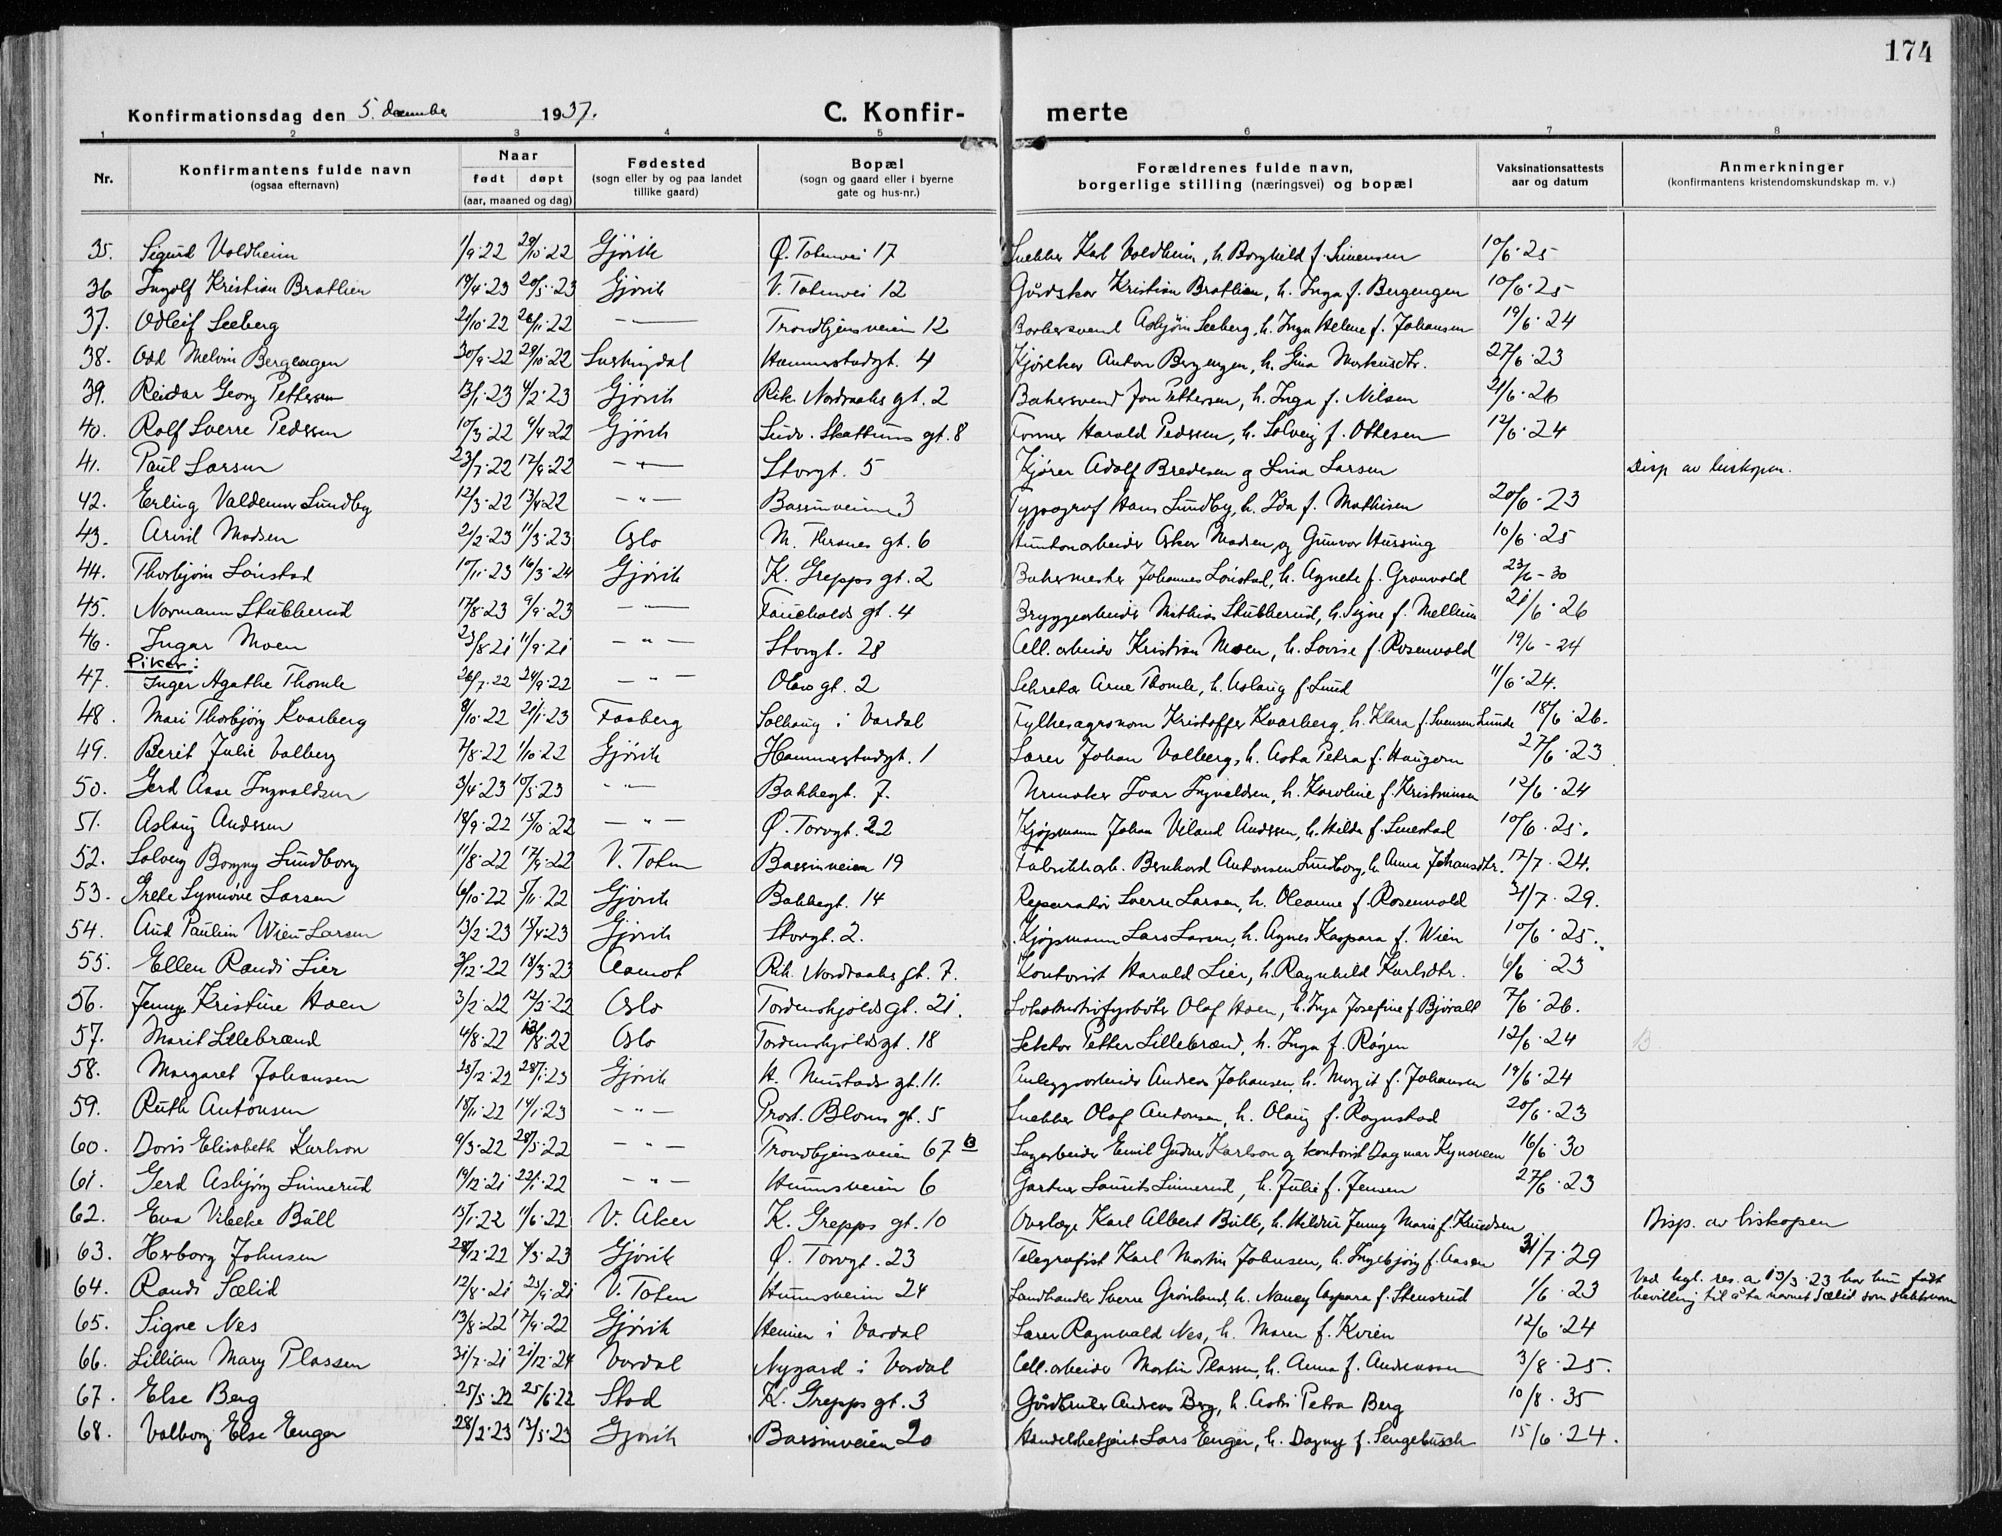 174
Konfirmationsdag den 5. december 1937. C. Konfir- merte
1 2 3 4 5 6 7 8
Nr. Konfirmantens fulde navn (ogsaa efternavn) Naar født døpt (aar, maaned og dag) Fødested (sogn eller by og paa landet tillike gaard) Bopæl (sogn og gaard eller i byerne gate og hus-nr.) Forældrenes fulde navn, borgerlige stilling (næringsvei) og bopæl Vaksinationsattests aar og datum Anmerkninger (konfirmantens kristendomskundskap m. v.)
35. Sigurd Voldheim 1/9-22 29/10-22 Gjøvik Ø. Totenvei 17 Snekker Karl Voldheim, h. Borghild f. Simensen 10/6-25
36 Ingolf Kristian Bratlien 19/4-23 20/5-23 Gjøvik V. Totenvei 12 Gårdskar Kristian Bratlien, h. Inga f. Bergengen 10/6-25
37. Odleif Seeberg 21/10-22 26/11-22 — Trondhjemsveien 12 Barbersvend Asbjørn Seeberg, h. Inga Helene f. Johansen 19/6-24
38. Odd Melvin Bergengen 30/9-22 29/10-22 Hammerstadgt. 4 Anton Bergengen, h. Gina Markusdtr. 27/6-23
39. Reidar Georg Pettersen 13/1-23 4/2-23 Gjøvik Rik. Nordraaks gt. 2 Bakersvend Jon Pettersen, h. Inga f. Nilsen 21/6-26
40. Rolf Sverre Pedersen 10/3-22 9/4-22 Gjøvik Ludv. Skattums gt. 8 Former Harald Pedersen, h. Solveig f. Ottesen 12/6-24
41. Paul Larsen 23/7-22 17/9-22 — " — Storgt. 5 Kjører Adolf Bredesen og Lina Larsen Disp av biskopen.
42. Erling Valdemar Sundby 12/3-22 13/4-22 — " — Bassinveien 3 Typograf Hans Sundby, h. Ida f. Mathisen 20/6-23
43. Arvid Madsen 21/2-23 11/3-23 Oslo M. Thranes gt. 6 Huntonarbeider Oskar Madsen og Gunvor Hussing 10/6-25
44. Thorbjørn Lønstad 10/11-23 16/3-24 Gjøvik K. Grepps gt. 2 Bakermester Johannes Lønstad, h. Agnete f. Granvold 23/6-30
45. Normann Stubberud 17/8-23 9/9-23 — " — Faucholds gt. 4 Bryggearbeider Mathias Stubberud, h. Signe f. Mellum 21/6-26
46. Ingar Moen 23/8-21 11/9-21 — " — Storgt. 28 Cell. arbeider Kristian Moen, h. Lovise f. Rosenvold 19/6-24
Piker:
47. Inger Agathe Thomle 26/7-22 24/9-22 — " — Olavs gt. 2 Sekretær Arne Thomle, h. Aslaug f. Lund 11/6-24.
48. Mari Thorbjørg Kvarberg 8/10-22 21/1-23 Faaberg Solhaug i Vardal Fylkesagronom Kristoffer Kvarberg, h. Klara f. Svensen Lunde 18/6-26.
49. Berit Julie Valberg 7/8-22 1/10-22 Gjøvik Hammerstadgt. 1 Lærer Johan Valberg, h. Asta Petra f. Haugom 27/6-23
50. Gerd Aase Ingvaldsen 3/4-23 10/5-23 — " — Bakkegt. 7. Urmaker Ivar Ingvaldsen, h. Karoline f. Kristiansen 12/6-24
51. Aslaug Anderssen 18/9-22 15/10-22 — " — Ø. Torvgt. 22 Kjøpmann Johan Viland Anderssen, h. Hilda f. Smestad 10/6-25.
52. Solveig Borgny Sundborg 11/8-22 17/9-22 V. Toten Bassinveien 19 Fabrikkarb. Bernhard Antonsen Sundborg, h. Anna Johansdtr. 12/7-24.
53. Grete Synnøve Larsen 6/10-22 5/11-22 Gjøvik Bakkegt. 14 Reparatør Sverre Larsen, h. Oleanne f. Rosenvold 31/7-29.
54. Aud Paulin Wien-Larsen 13/2-23 15/4-23 Gjøvik Storgt. 2. Kjøpmann Lars Larsen, h. Agnes Kaspara f. Wien 10/6-25.
55. Ellen Randi Lier 3/12-22 18/3-23 Aamot Rik. Nordraaks gt. 7. Kontorist Harald Lier, h. Ragnhild Karlsdtr. 6/6 23
56. Jenny Kristine Hoen 3/2-22 12/3-22 Oslo Tordenskjolds gt. 21. Lokomotivfyrbøter Olaf Hoen, h. Inga Josefine f. Bjøralt 7/6-26.
57. Marit Lillebrænd 4/8-22 13/8-22 Oslo Tordenskjolds gt. 18 Lektor Petter Lillebrænd, h. Inga f. Røgen 12/6-24
58. Margaret Johansen 23/12-22 28/1-23 Gjøvik H. Mustads gt. 11. Anleggsarbeider Andreas Johansen, h. Margit f. Johansen 19/6-24
59. Ruth Antonsen 18/11-22 14/1-23 — " — Prost. Bloms gt. 5 Snekker Olaf Antonsen, h. Olaug f. Rognstad 20/6-23
60. Doris Elisabeth Karlson 9/3-22 28/5-22 — " — Trondhjemsveien 67 b Lagerarbeider Emil Gudmar Karlson og kontorist Dagmar Kynsveen 16/6-30
61. Gerd Asbjørg Linnerud 19/12-21 22/1-22 — " — Hunnsveien 6 Gartner Laurits Linnerud, h. Julie f. Jensen 27/6-23
62. Eva Vibeke Bull 15/1-22 11/6-22 V. Aker K. Grepps gt. 10 Overlæge Karl Albert Bull, h. Hildur Jenny Marie f. Knudsen Disp. av biskopen
63. Herborg Johnsen 28/12-22 4/3-23 Gjøvik Ø. Torvgt. 23 Telegrafist Karl Martin Johnsen, h. Ingebjørg f. Aasen 31/7-29
64. Randi Sælid 12/8-21 25/9-21 V. Toten Hunnsveien 24 Landhandler Sverre Grønland, h. Nancy Caspara f. Stensrud 1/6-23 Ved kgl. res. av 13/3-23 har hun fått bevilling til å ta navnet Sælid som slektsnavn
65. Signe Nes 13/8-22 17/9-22 Gjøvik Hennien i Vardal Lærer Ragnvald Nes, h. Maren f. Kvien 12/6-24
66. Lillian Mary Plassen 31/7-21 21/12-24 Vardal Nygard i Vardal Cell. arbeider Martin Plassen, h. Anna f. Andreassen 3/8-25.
67. Else Berg 25/5-22 25/6-22 Stod K. Grepps gt. 3 Gårdbruker Andreas Berg, h. Astri Petra Berg 10/8-35
68. Valborg Else Enger 28/2-23 13/5-23 Gjøvik Bassinveien 20 Handelsbetjent Lars Enger, h. Dagny f. Sengebusch 15/6-24.